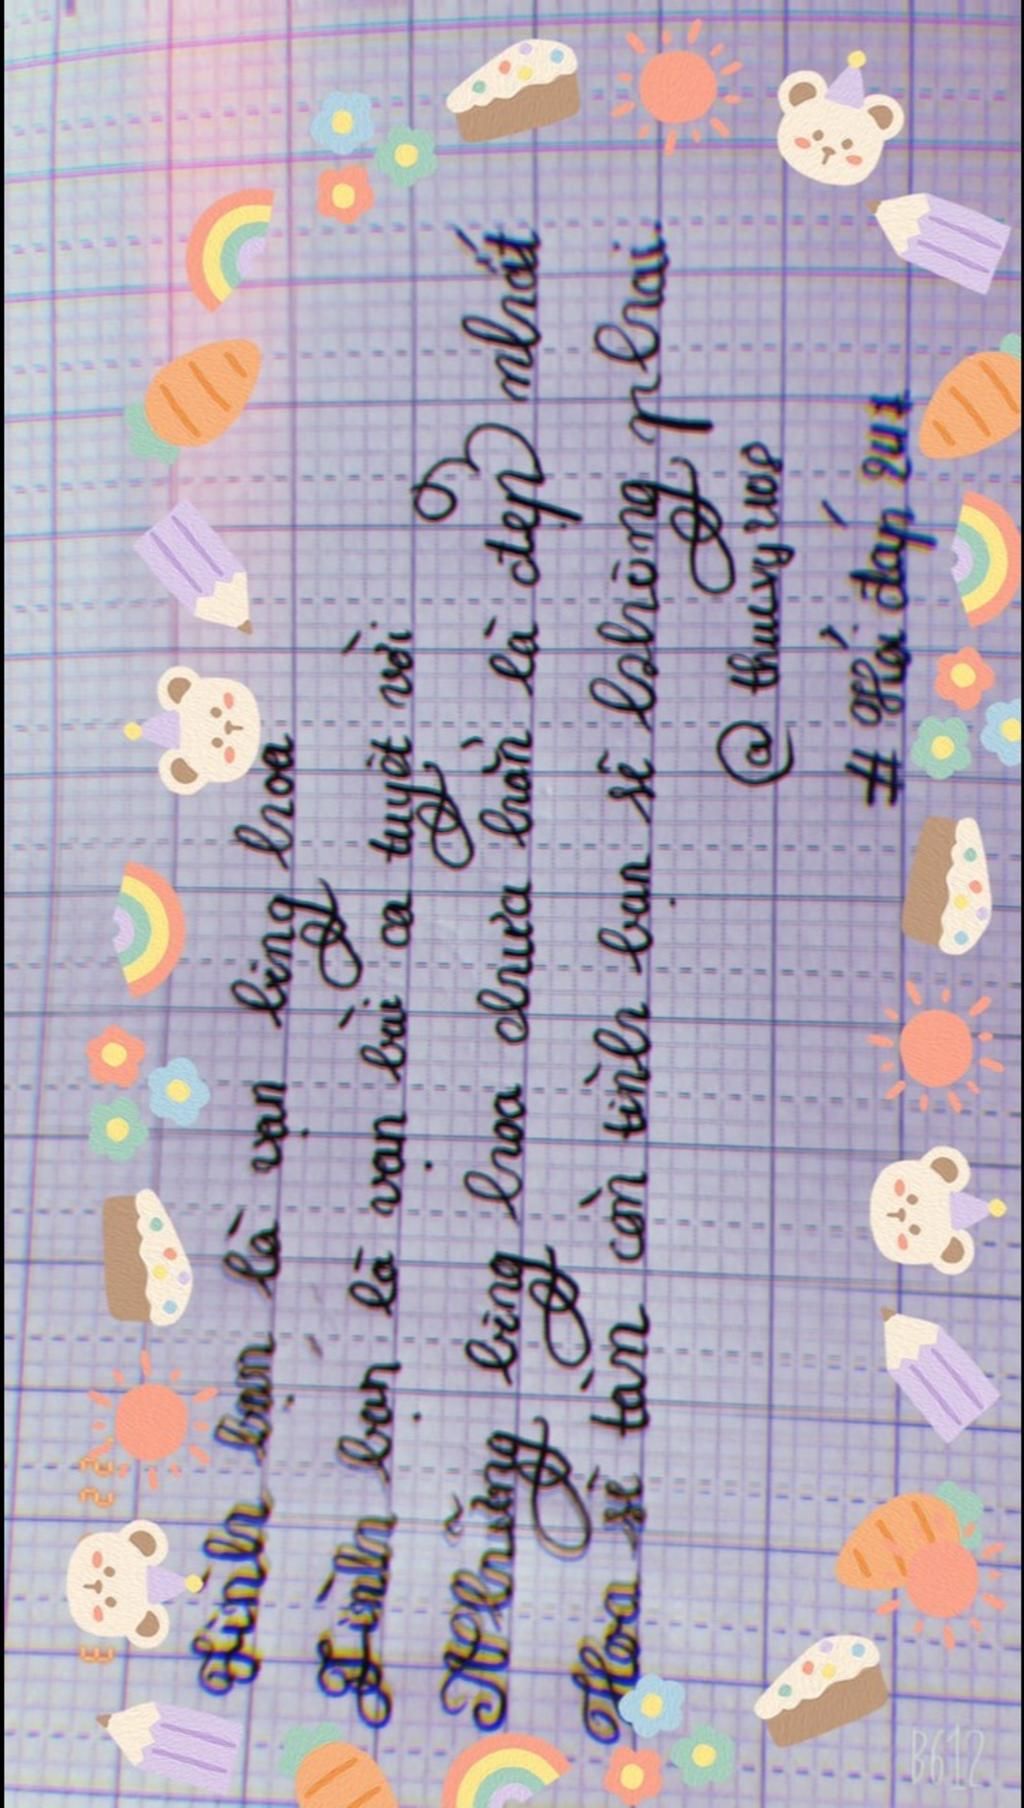 Tình bạn là vạn bông hoa
Tình bạn là vạn bài ca tuyệt vời
Những bông hoa chưa hẳn là đẹp nhất
Hoa sẽ tàn còn tình bạn sẽ không phai
@ thuuvy
# Hỏi đáp 247
B612